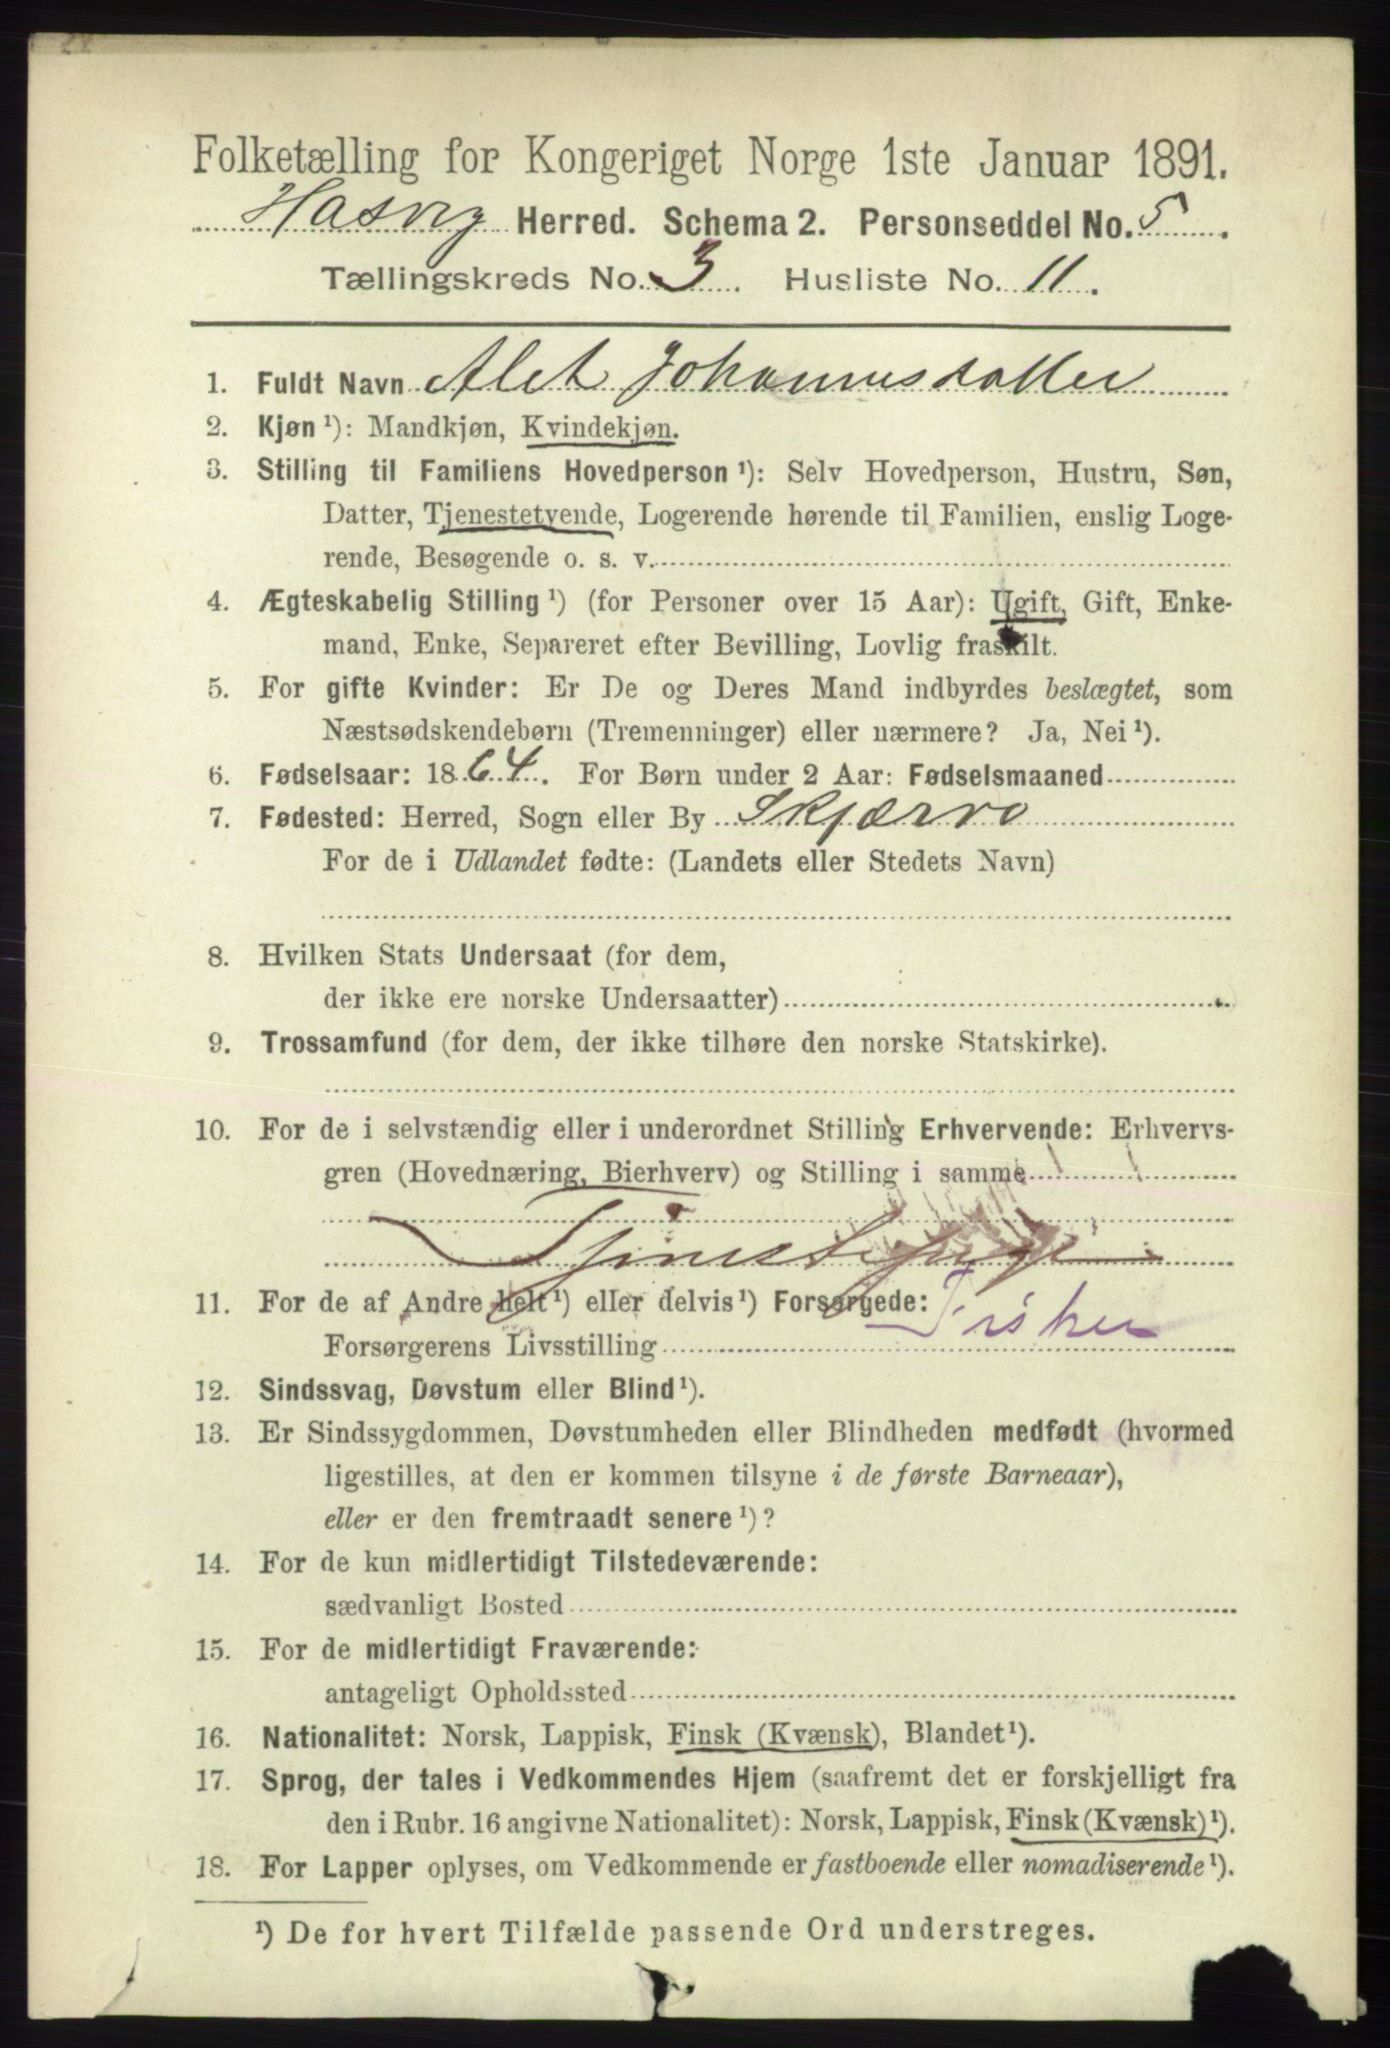 Folketælling for Kongeriget Norge 1ste Januar 1891.
Hasvig Herred. Schema 2. Personseddel No. 5.
Tællingskreds No. 3. Husliste No. 11.
1. Fuldt Navn Alet Johannesdatter
2. Kjøn ¹): Mandkjøn, Kvindekjøn.
3. Stilling til Familiens Hovedperson ¹): Selv Hovedperson, Hustru, Søn,
Datter, Tjenestetyende, Logerende hørende til Familien, enslig Loge-
rende, Besøgende o. s. v.
4. Ægteskabelig Stilling ¹) (for Personer over 15 Aar): Ugift, Gift, Enke-
mand, Enke, Separeret efter Bevilling, Lovlig fraskilt.
5. For gifte Kvinder: Er De og Deres Mand indbyrdes beslægtet, som
Næstsødskendebørn (Tremenninger) eller nærmere? Ja, Nei ¹).
6. Fødselsaar: 1864. For Børn under 2 Aar: Fødselsmaaned
7. Fødested: Herred, Sogn eller By Skjærvo
For de i Udlandet fødte: (Landets eller Stedets Navn)
8. Hvilken Stats Undersaat (for dem,
der ikke ere norske Undersaatter)
9. Trossamfund (for dem, der ikke tilhøre den norske Statskirke).
10. For de i selvstændig eller i underordnet Stilling Erhvervende: Erhvervs-
gren (Hovednæring, Bierhverv) og Stilling i samme
Tjenestepige
11. For de af Andre helt ¹) eller delvis ¹) Forsørgede:
Fisker
Forsørgerens Livsstilling
12. Sindssvag, Døvstum eller Blind ¹).
13. Er Sindssygdommen, Døvstumheden eller Blindheden medfødt (hvormed
ligestilles, at den er kommen tilsyne i de første Barneaar),
eller er den fremtraadt senere ¹)?
14. For de kun midlertidigt Tilstedeværende:
sædvanligt Bosted
15. For de midlertidigt Fraværende:
antageligt Opholdssted
16. Nationalitet: Norsk, Lappisk, Finsk (Kvænsk), Blandet ¹).
17. Sprog, der tales i Vedkommendes Hjem (saafremt det er forskjelligt fra
den i Rubr. 16 angivne Nationalitet): Norsk, Lappisk, Finsk (Kvænsk) ¹).
18. For Lapper oplyses, om Vedkommende er fastboende eller nomadiserende ¹).
¹) De for hvert Tilfælde passende Ord understreges.